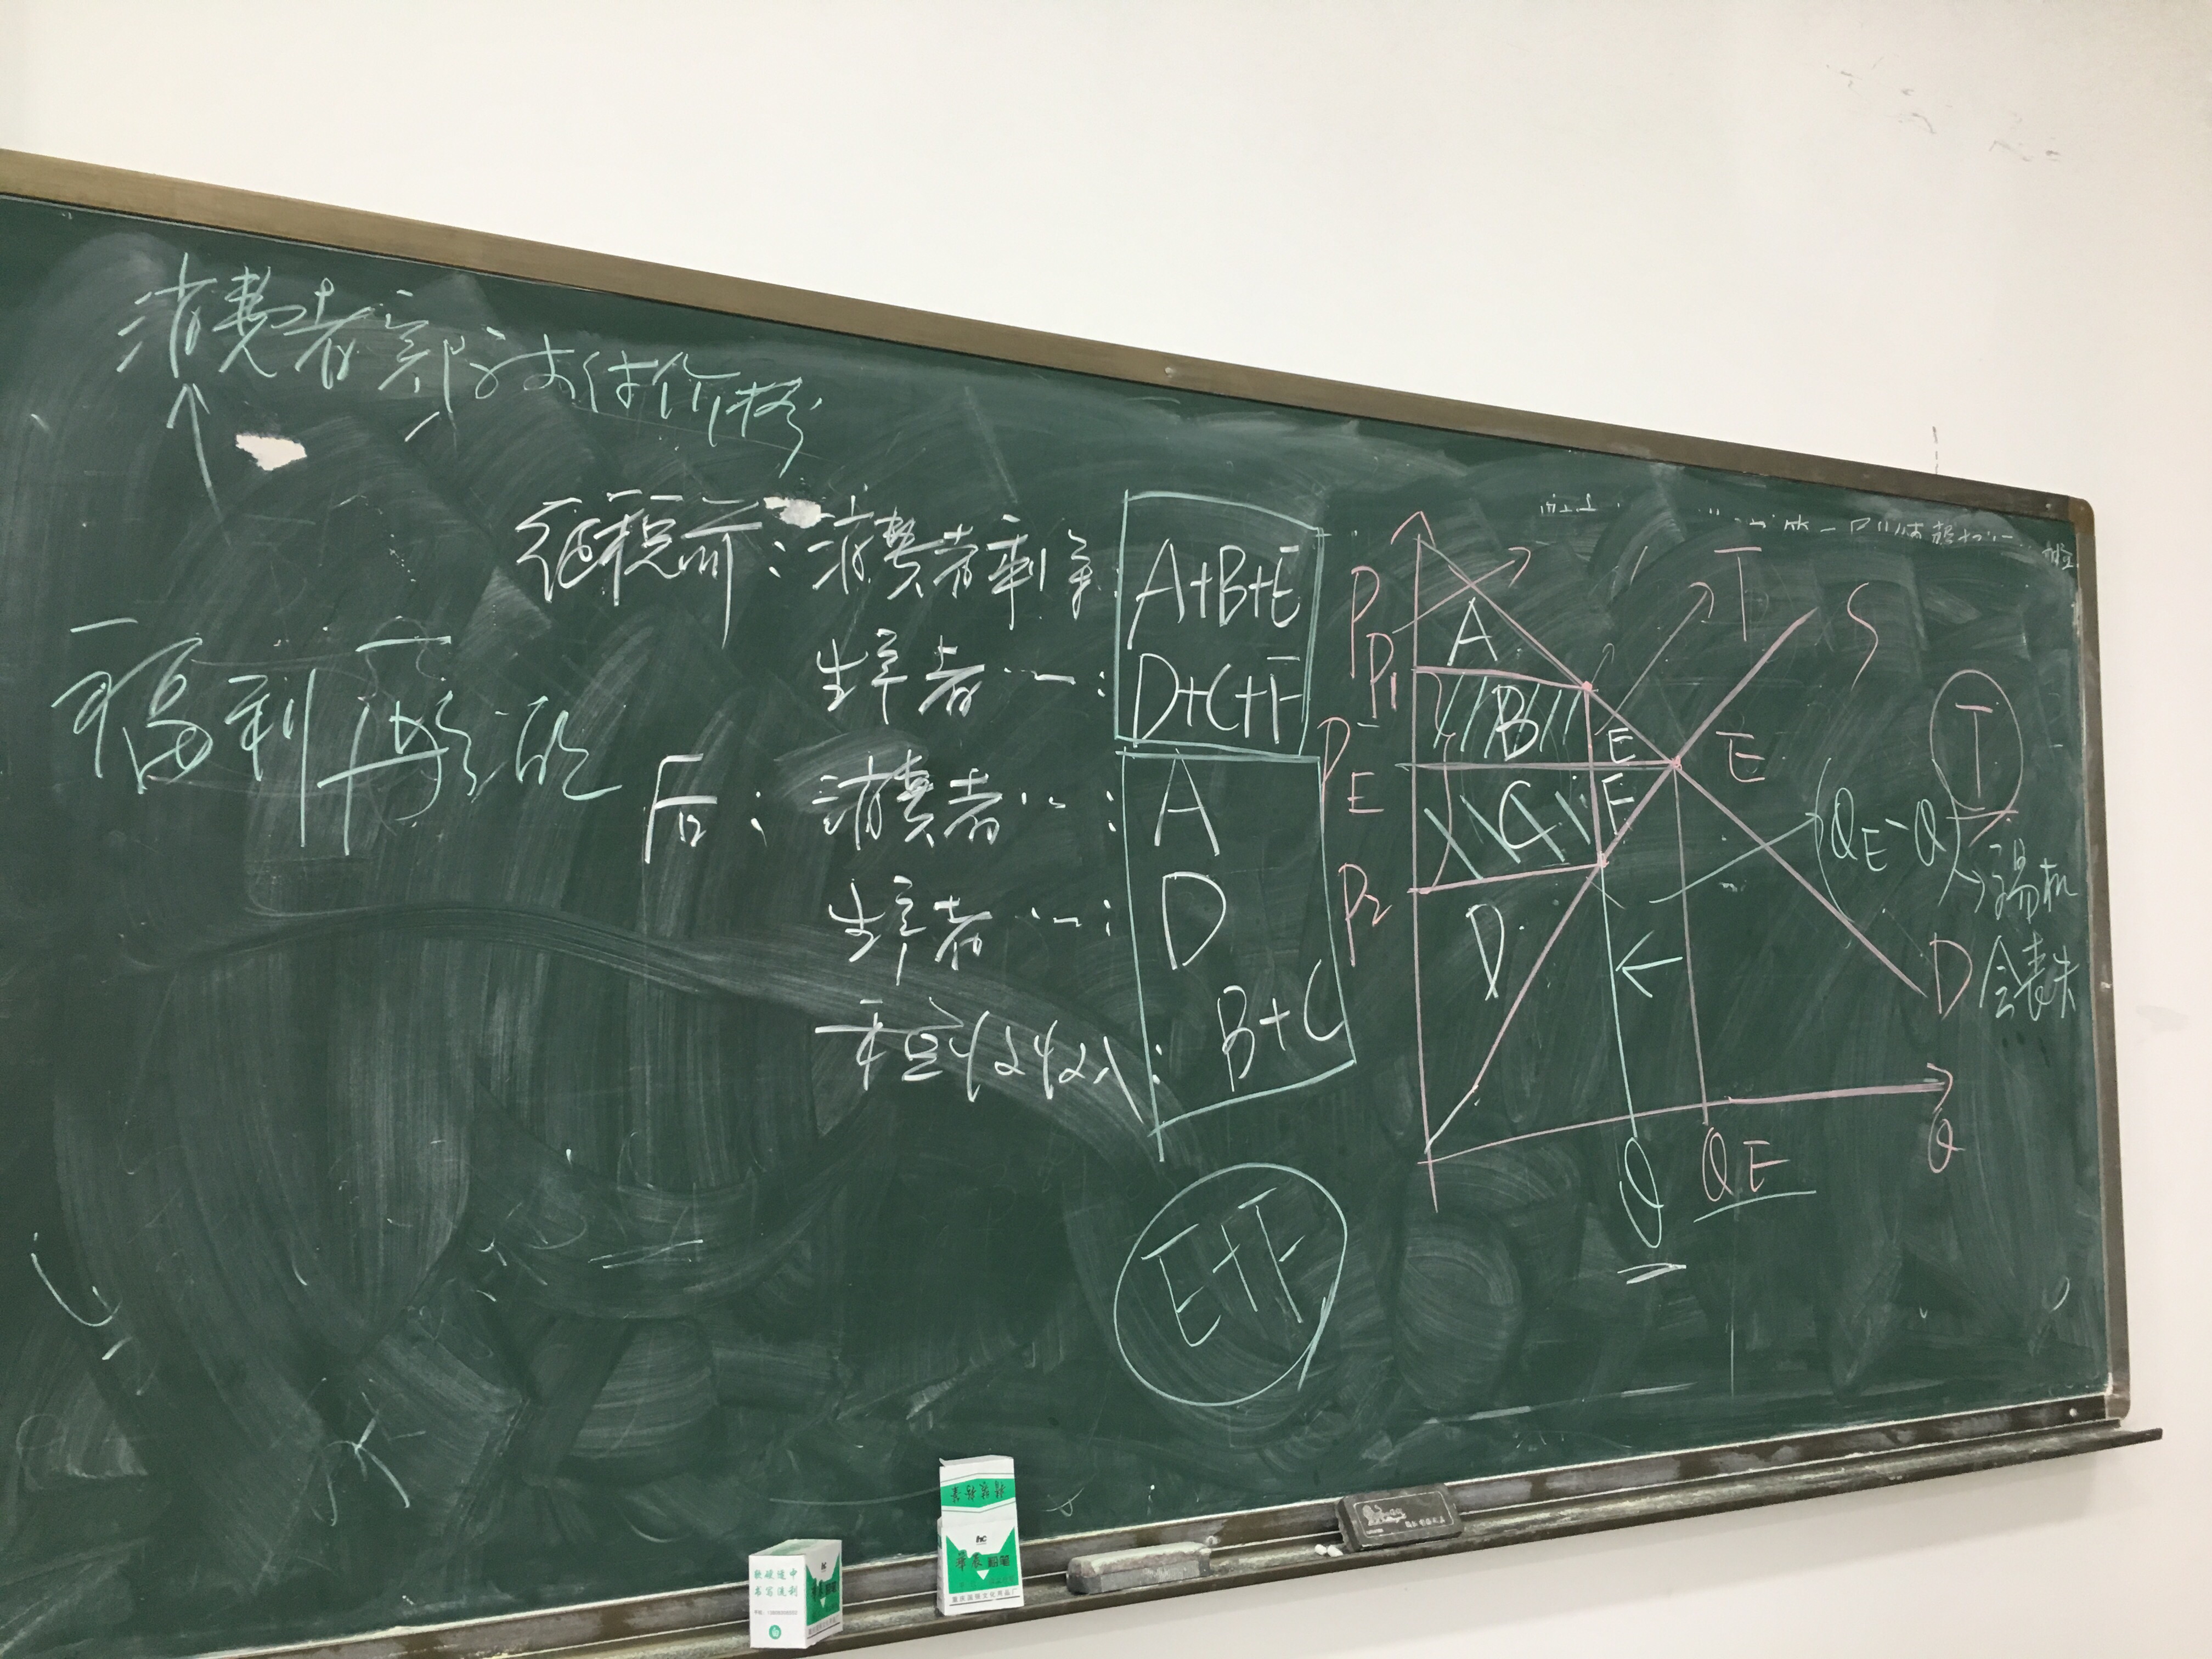 消费者实际支付价格
征税前：消费者剩余 A+B+E
生产者…：D+C+F
福利
后：消费者…：A
生产者…：D
税收收入：B+C
E+F
P
P1
PE
P2
A
B
C
D
E
F
T
S
E
D
T
(QE-Q)
交易机
会丧失
Q
QE
Q
粉笔